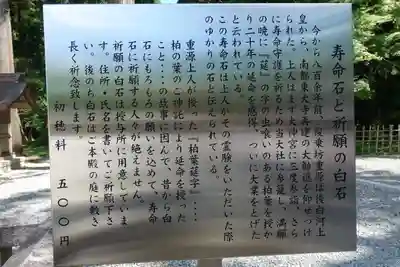 寿命石と祈願の白石
今から八百余年前、俊乗坊重源は後白河上
皇から、南都東大寺再建の大勧進を仰せつけ
られた。上人はまず大神宮に三度参籠、さら
に寿命守護を祈る多賀大社に参籠し、満願
の暁に「莚」の字の虫喰いのある柏葉を授か
り二十年の延命を感得、ついに大業をとげた
と云われる。
この寿命石は上人がその霊験をいただいた際
のゆかりの石と伝えられている。
重源上人が授った「柏葉莚字」・・・・
柏の葉のご神託により延命を授った
こと・・・の故事に因んで、昔から白
石にもろもろの願いを込めて、寿命
石に祈願する人々が絶えません。
祈願の白石は授与所に用意していま
す。住所・氏名を書いてご祈願下さ
い。後のち白石はご本殿の庭に敷き
長く祈念致します。
初穂料 五〇〇円